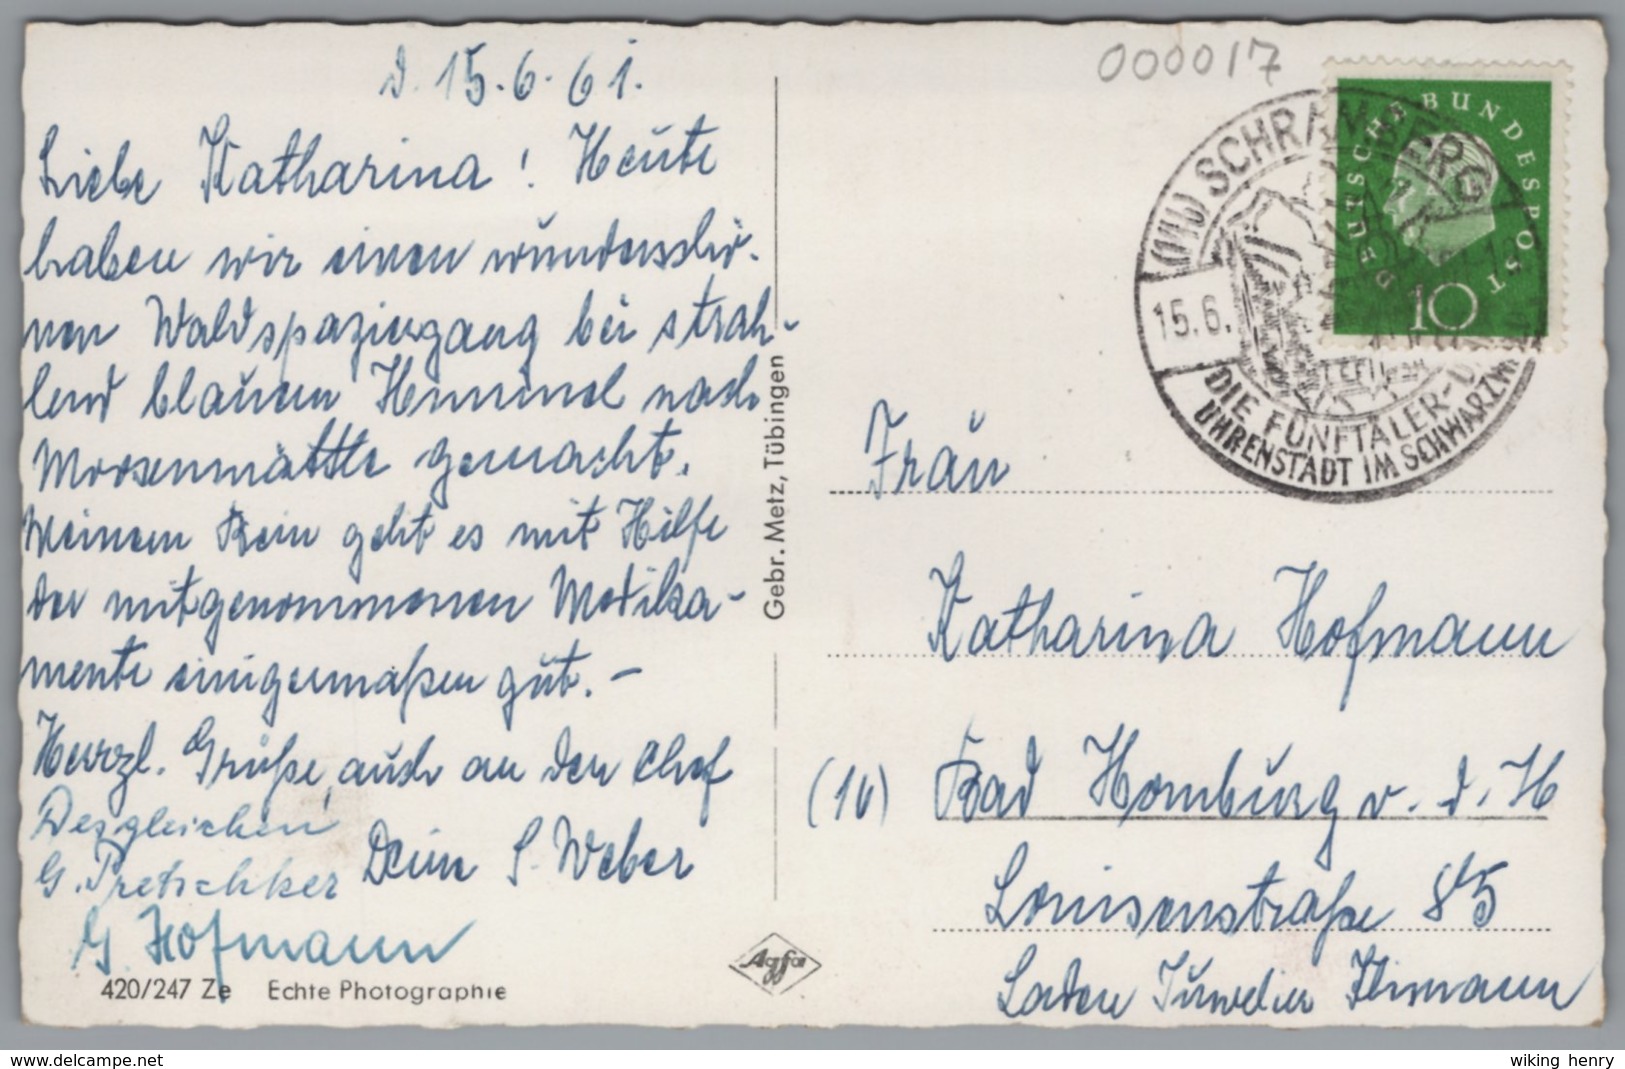 d. 15.6.61.
Liebe Katharina! Heute
haben wir einen wunderschö-
nen Waldspaziergang bei strah-
lend blauem Himmel nach
Moosenmättle gemacht.
Meinem Bein geht es mit Hilfe
der mitgenommenen Medika-
mente einigermaßen gut. –
Herzl. Grüße, auch an den Chef
Desgleichen
G. Pretschker
Deine S. Weber
G. Hofmann
420/247 Ze Echte Photographie
Gebr. Metz, Tübingen
Agfa
000017
DEUTSCHE BUNDESPOST
10
SCHRAMBERG
15.6.
DIE FÜNFTÄLER-
UHRENSTADT IM SCHWARZW
Frau
Katharina Hofmann
(16) Bad Homburg v. d. H
Louisenstraße 85
Laden Juwelier
www.delcampe.net
wiking henry